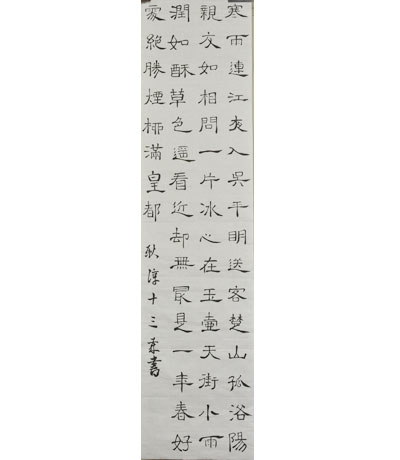 寒雨連江夜入吳平明送客楚山孤洛陽
親友如相問一片冰心在玉壺天街小雨
潤如酥草色遥看近却無最是一年春好
處絕勝煙柳滿皇都
耿淳十三歲書